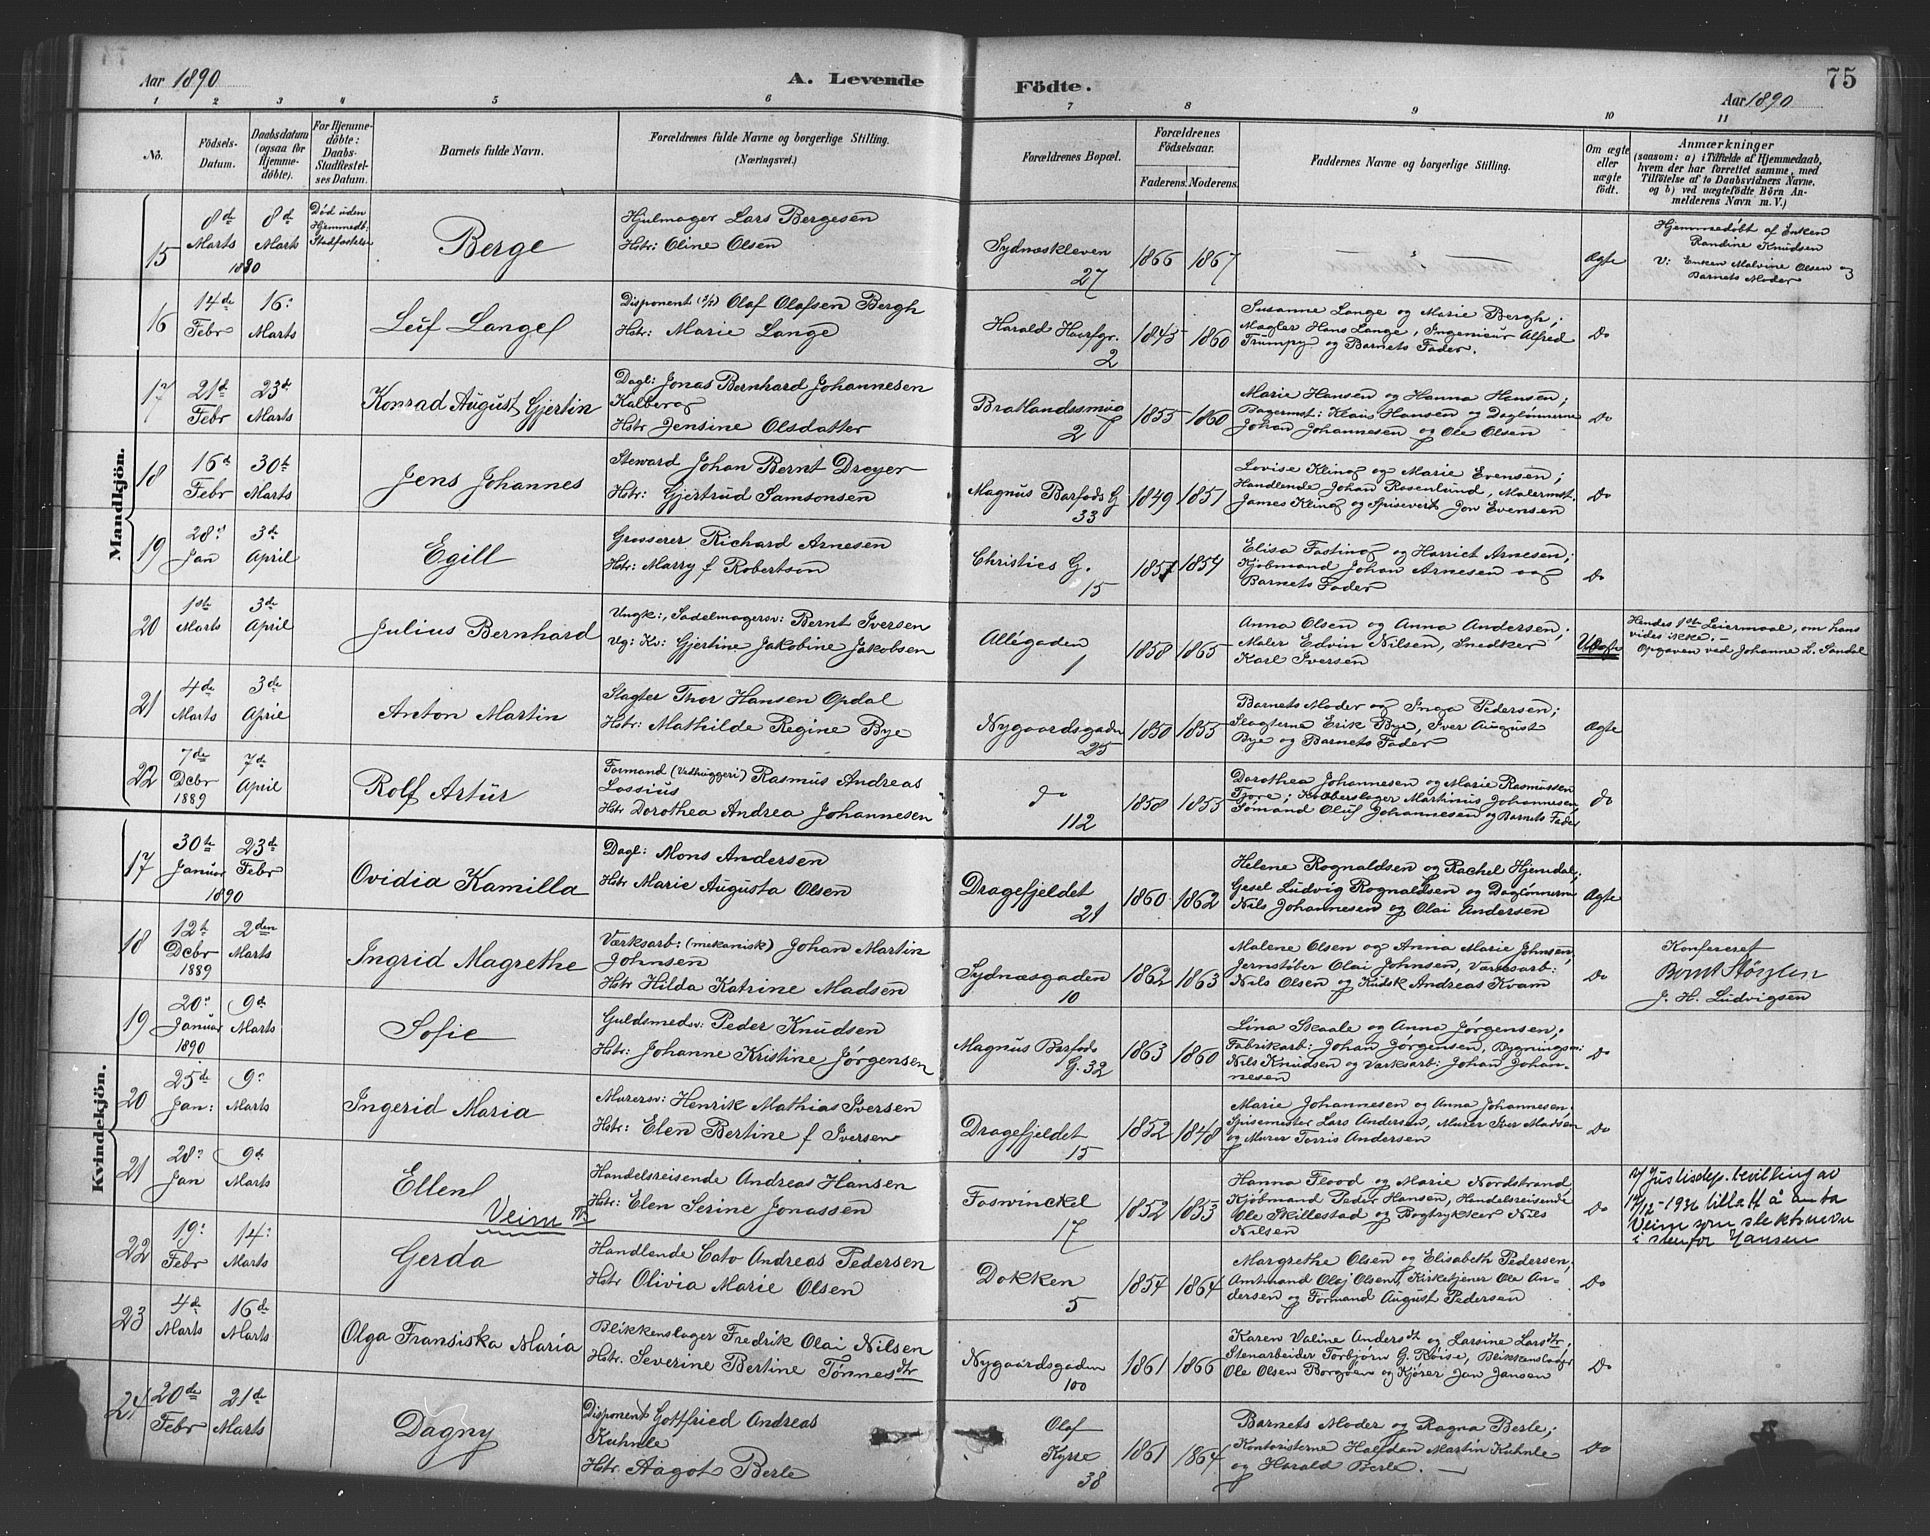 Aar 1890
A. Levende
Födte.
75
Aar 1890
1 2 3 4 5 6 7 8 9 10 11
No.
Födsels-
Datum.
Daabsdatum
(ogsaa for
Hjemme-
döbte).
For Hjemme-
döbte:
Daabs-
Stadfæstel-
ses Datum.
Barnets fulde Navn.
Forældrenes fulde Navne og borgerlige Stilling.
(Næringsvei.)
Forældrenes Bopæl.
Forældrenes
Födselsaar.
Faderens. Moderens.
Faddernes Navne og borgerlige Stilling.
Om ægte
eller
uægte
födt.
Anmærkninger
(saasom: a) i Tilfælde af Hjemmedaab,
hvem der har forrettet samme, med
Tilföielse af to Daabsvidners Navne.
og b) ved uægtefödte Börn An-
melderens Navn m. V.)
Mandkjön.
15
8de Marts 1890
8de Marts
Död uden
Hjemmedb:
Stadfæstelse
Berge
Hjulmager Lars Bergesen
Hstr: Oline Olsen
Sydnæskleven
27
1866 1867
Ægte
Hjemmedöbt af Enken
Randine Knudsen
V: Enken Malvine Olsen og
Barnets Moder
16
14de Febr
16: Marts
Leif Lange
Disponent Olaf Olafsen Bergh
Hstr: Marie Lange
Harald Haarfgr.
2
1845 1860
Susanne Lange og Marie Bergh;
Mægler Hans Lange, Ingenieur Alfred
Trumpy og Barnets Fader.
Do
17
21d Febr
23de Marts
Konrad August Gjertin
Dagl: Jonas Bernhard Johannesen
Kalberg
Hstr Jensine Olsdatter
Bratlandssmug
2
1855 1860
Marie Hansen og Hanna Hansen;
Bagermst: Klaus Hansen og Daglönnerne
Johan Johannesen og Ole Olsen
Do
18
16d Febr
30te Marts
Jens Johannes
Steward Johan Bernt Dreyer
Hstr: Gjertrud Samsonsen
Magnus Barfods G
33
1849 1851
Lovise Kling og Marie Evensen;
Handlende Johan Rosenlund, Malermst.
James Kling og Spisevert Jon Evensen
Do
19
28: Jan
3de April
Egill
Grosserer Richard Arnesen
Hstr: Marry f Robertson
Christies G.
15
1851 1854
Elisa Fasting og Harriet Arnesen;
Kjöbmand Johan Arnesen og
Barnets Fader
Do
20
1ste Marts
3de April
Julius Bernhard
Ungk:, Sadelmagersv: Bernt Iversen
Ug: Kv: Gjertine Jakobine Jakobsen
Allégaden
1
1858 1865
Anna Olsen og Anna Andersen;
Maler Edvin Nilsen, Snedker
Karl Iversen
Uægte
Hendes 1ste Leiermaal, om hans
vides ikke.-
Opgaven ved Johanne L. Sandal
21
4de Marts
3de April
Anton Martin
Slagter Thor Hansen Opdal
Hstr: Mathilde Regine Bye
Nygaardsgaden
25
1850 1855
Barnets Moder og Inga Pedersen;
Slagterne Erik Bye, Iver August
Bye og Barnets Fader
Ægte
22
7de Dcbr 1889
7de April
Rolf Artur
Formand (Vedhuggeri) Rasmus Andreas
Lossius
Hstr Dorothea Andrea Johannesen
do
112
1858 1855
Dorothea Johannesen og Marie Rasmussen
Tjore; Kobberslager Martinus Johannesen,
Sömand Oluf Johannesen og Barnets Fader
do
Kvindekjön.
17
30te Januar 1890
23de Febr
Ovidia Kamilla
Dagl: Mons Andersen
Hstr Marie Augusta Olsen
Dragefjeldet
21
1860 1862
Helene Rognaldsen og Rachel Hjemdal;
Gesel Ludvig Rognaldsen og Daglönnerne
Nils Johannesen og Olai Andersen
Ægte
18
12t Dcbr 1889
2den Marts
Ingrid Magrethe
Værksarb: (mekanisk) Johan Martin
Johnsen
Hstr Hilda Katrine Madsen
Sydnæsgaden
10
1862 1863
Malene Olsen og Anna Marie Johnsen;
Jernstöber Olai Johnsen, Værksarb:
Nils Olsen og Kudsk Andreas Kvam
Do
Konfereret
J. H. Ludvigsen
19
20: Januar 1890
9de Marts
Sofie
Guldsmedsv: Peder Knudsen
Hstr: Johanne Kristine Jörgensen
Magnus Barfods
G. 32
1863 1860
Lina Skaale og Anna Jörgensen;
Fabrikarb: Johan Jörgensen, Bygningsm:
Nils Knudsen og Værksarb: Johan Johan-
nesen
Do
20
25de Jan:
9: Marts
Ingerid Maria
Murersv: Henrik Mathias Iversen
Hstr: Elen Bertine f Iversen
Dragefjeldet
15
1852 1848
Marie Johannesen og Anna Johannesen;
Spisemester Lars Andersen, Murer Iver Madsen
og Murer Terris Andersen
Do
21
28: Jan
9de Marts
Ellen
Veim
Handelsreisende Andreas Hansen
Hstr: Elen Serine Jonassen
Fosvinckel
17
1852 1853
Hanna Flood og Marie Nordstrand
Kjöbmand Peder Hansen, Handelsreisende
Ole Skillestad og Bogtrykker Nils
Nilsen
Do
v/ Justisdep. bevilling av
12/12-1936 tillatt å anta
Veim som slektsnavn
i stenfor Hansen
22
19: Febr
14: Marts
Gerda
Handlende Cato Andreas Pedersen
Hstr Olivia Marie Olsen
Dokken
5
1854 1864
Margrethe Olsen og Elisabeth Pedersen,
Amtmand Olaj Olsen, Kirketjener Ole An-
dersen og Formand August Pedersen
Do
23
4de Marts
16de Marts
Olga Fransiska Maria
Blikkenslager Fredrik Olai Nilsen
Hstr. Severine Bertine Tönnesdtr
Nygaardsgaden
100
1861 1866
Karen Valine Andersdtr og Larsine Larsdtr,
Stenarbeider Torbjörn G. Röise, Blikkenslager
Ole Olsen Borgöens og Kjörer Jan Jansen
Do
24
20de Febr
21de Marts
Dagny
Disponent Gottfried Andreas
Kuhnle
Hstr Aagot Berle
Olaf
Kyrre
38
1861 1864
Barnets Moder og Ragna Berle;
Kontoristerne Halfdan Martin Kuhnle
og Harald Berle. —
Do